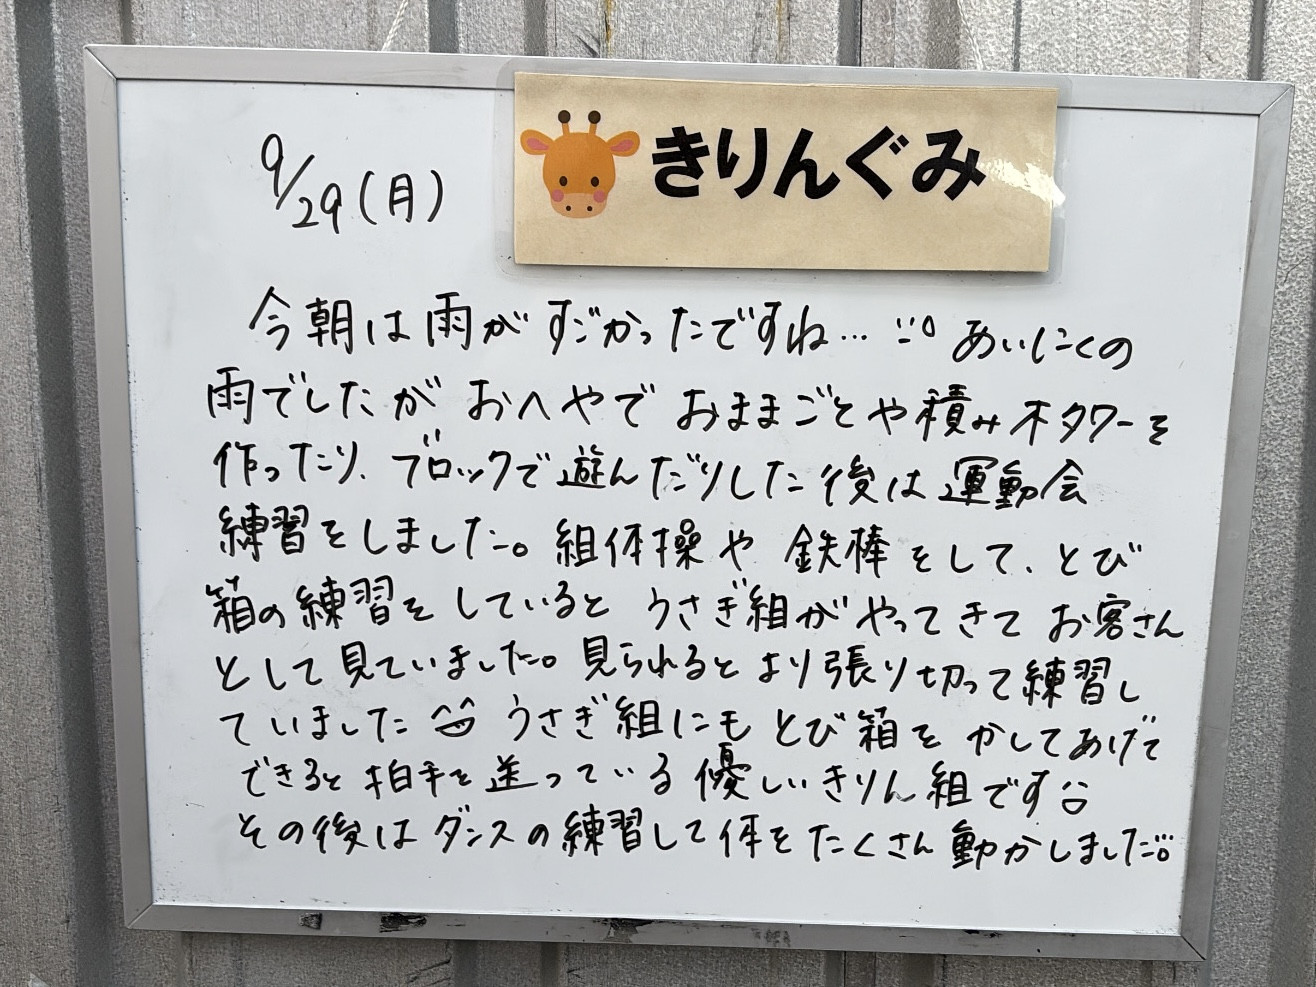 きりんぐみ
9/29(月)
今朝は雨がすごかったですね… あいにくの
雨でしたが おへやで おままごとや積み木タワーを
作ったり、ブロックで遊んだりした後は運動会
練習をしました。組体操や 鉄棒をして、とび
箱の練習をしていると うさぎ組がやってきて お客さん
として見ていました。見られるとより張り切って練習し
ていました うさぎ組にも とび箱を かしてあげて
できると拍手を送っている優しいきりん組です
その後はダンスの練習して体をたくさん動かしました。